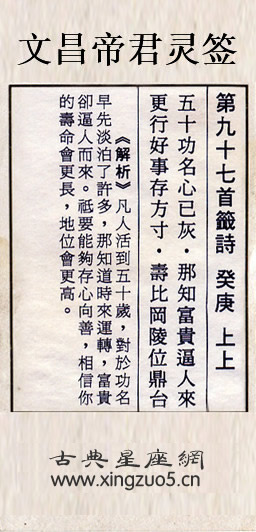 文昌帝君灵签
第九十七首籤詩 癸庚 上上
五十功名心已灰·那知富貴逼人來
更行好事存方寸·壽比岡陵位鼎台
《解析》凡人活到五十歲，對於功名
早先淡泊了許多，那知道時來運轉，富貴
卻逼人而來。祇要能夠存心向善，相信你
的壽命會更長，地位會更高。
古典星座網
www.xingzuo5.cn